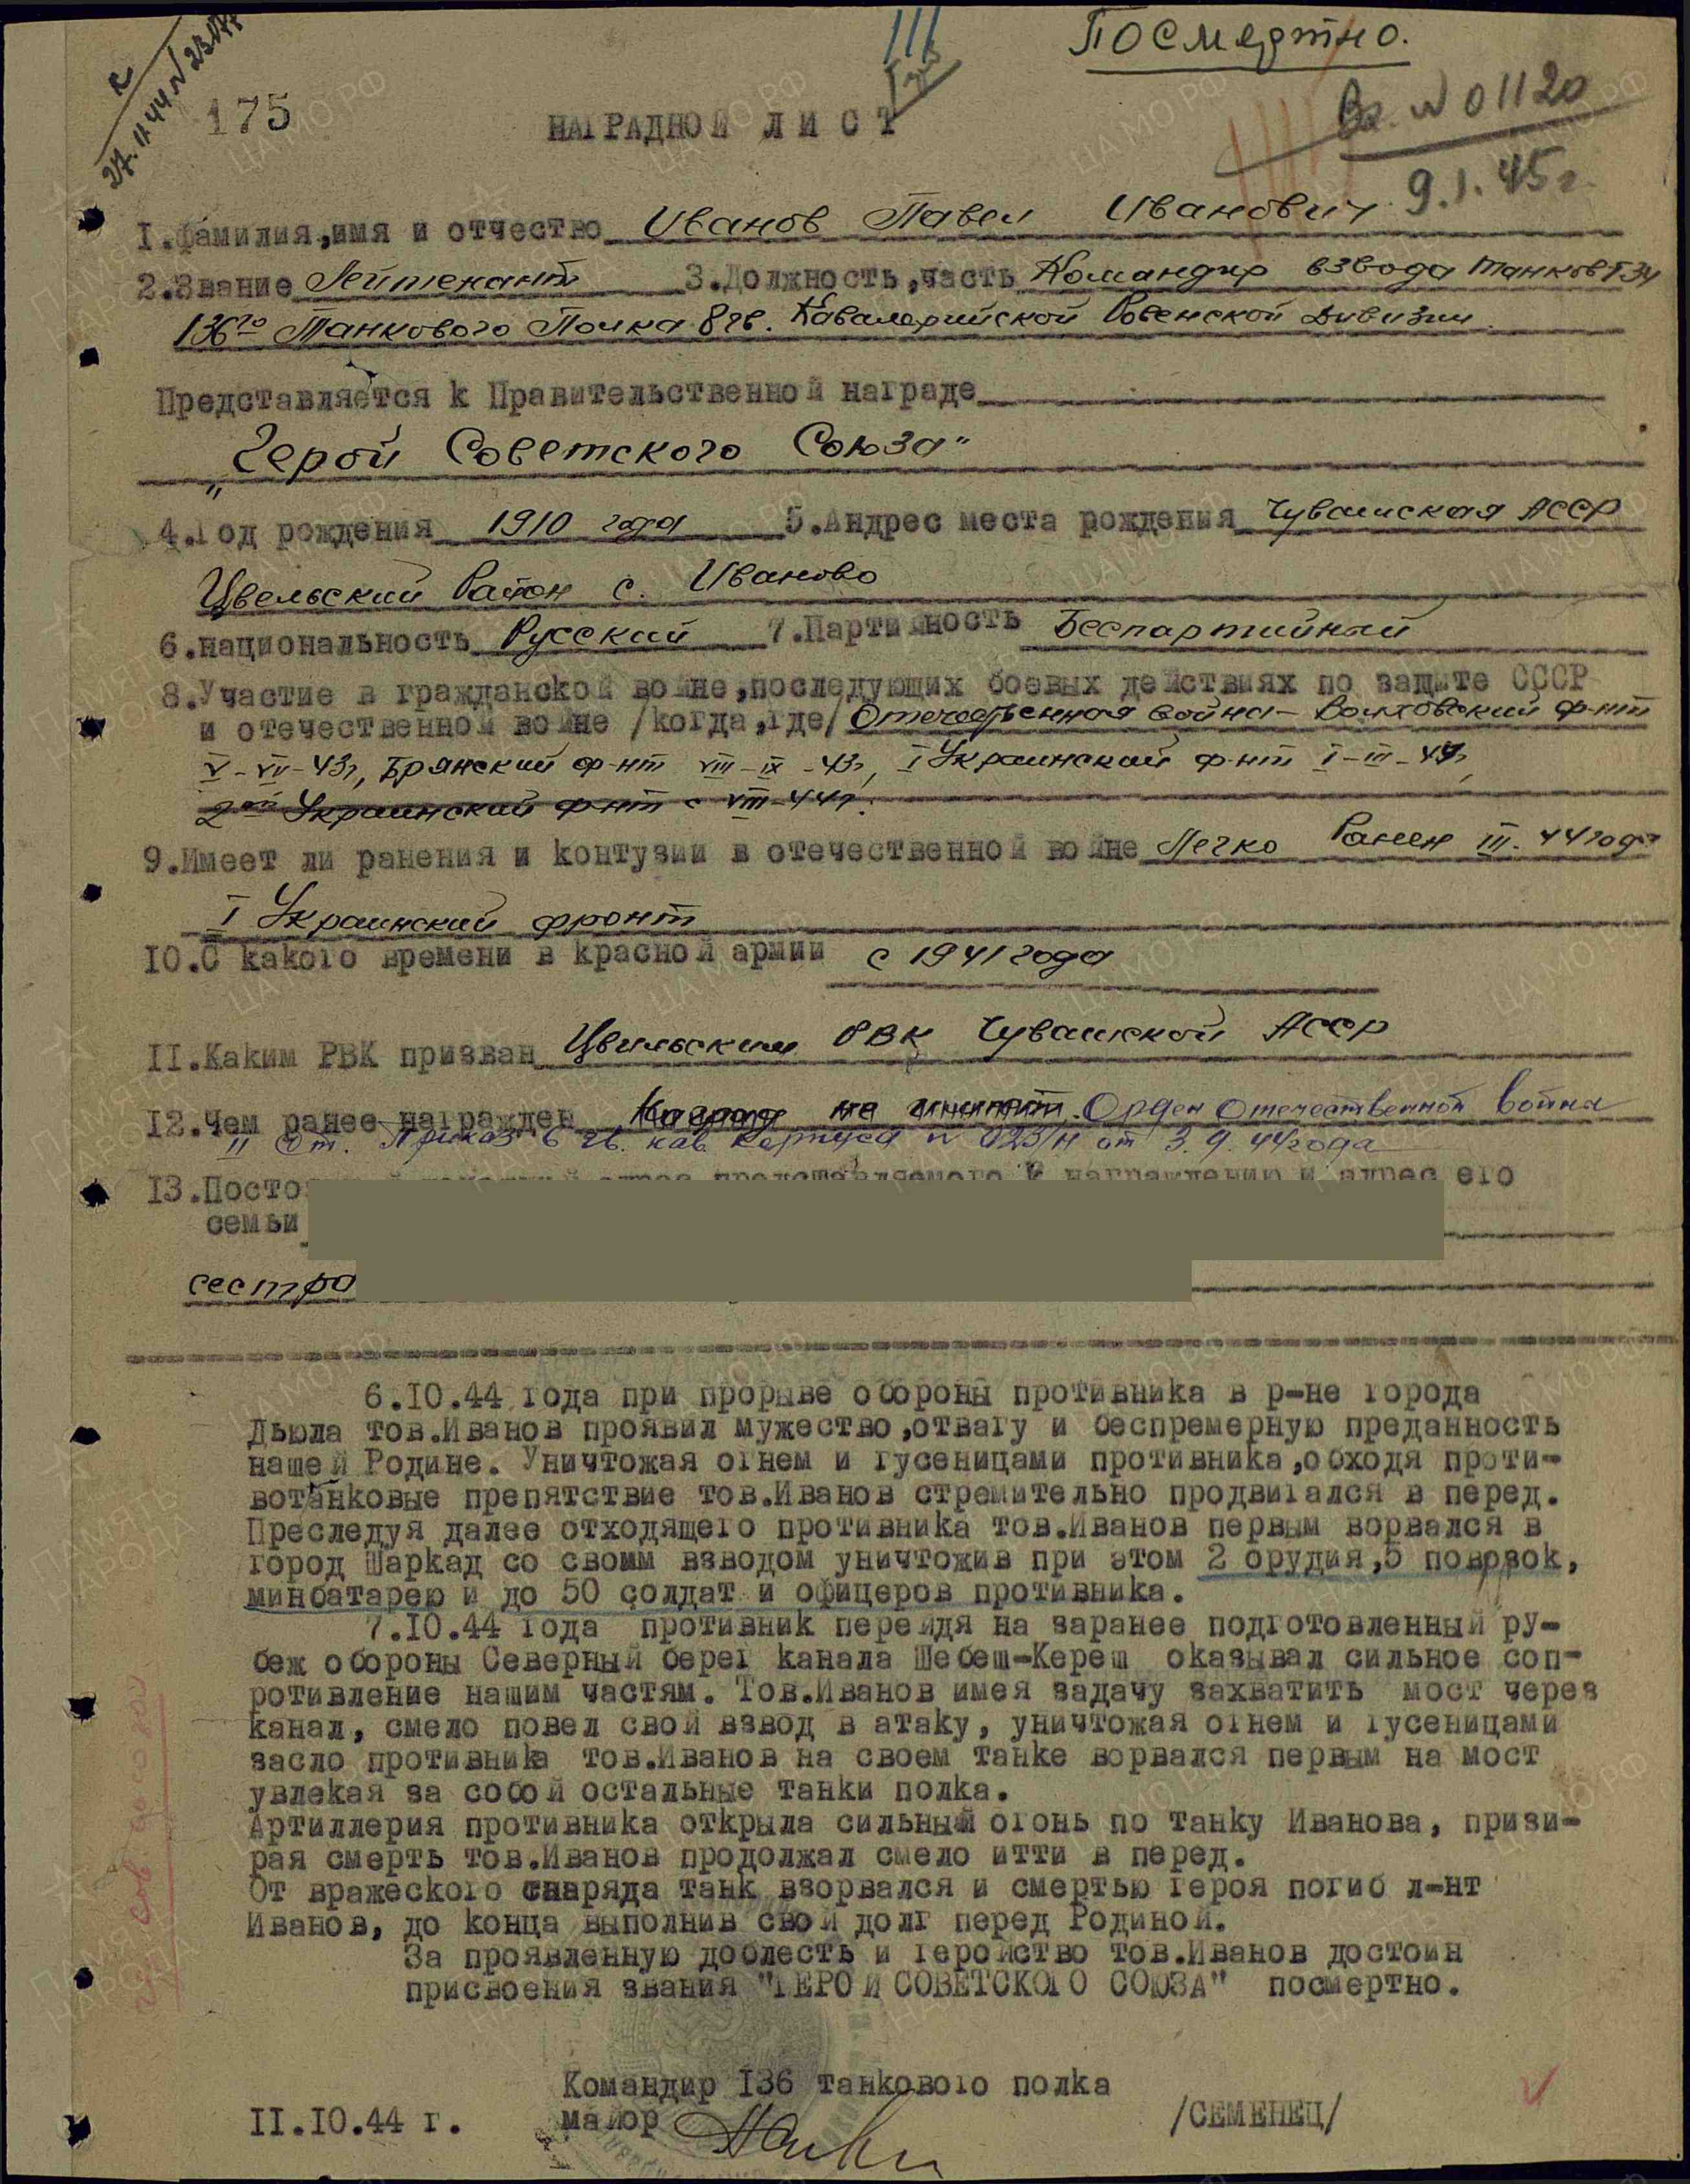 Посмертно.
27.11.44 №
175
Вх. № 01120
9.1.45г.
НАГРАДНОЙ ЛИСТ
I.Фамилия,имя и отчество Иванов Павел Иванович
2.Звание Лейтенант 3.Должность,часть Командир взвода танков Т-34
136го Танкового Полка 8 гв. Кавалерийской Ровенской Дивизии
Представляется к Правительственной награде
„Герой Советского Союза"
4.Год рождения 1910 года 5.Андрес места рождения Чувашская АССР
Цвельский Район с. Иваново
6.национальность Русский 7.Партийность Беспартийный
8.Участие в гражданской войне,последующих боевых действиях по защите СССР
и отечественной войне /когда,где/ Отечественная война - Волховский ф-нт
V-VII-43г, Брянский ф-нт VIII-IX-43г, I Украинский ф-нт I-III-44г,
2ой Украинский ф-нт с VIII-44г.
9.Имеет ли ранения и контузии в отечественной войне Легко Ранен III.44 года
I Украинский фронт
10.С какого времени в красной армии с 1941 года
II.Каким РВК призван Цвильским РВК Чувашской АССР
12.Чем ранее награжден Орден Отечественной Войны
II ст. Приказ 6 гв. кав. корпуса № 023/н от 3.9.44 года
13.Постоянный адрес представляемого к награждению и адрес его
семьи
сестра
6.IO.44 года при прорыве обороны противника в р-не города
Дьюла тов.Иванов проявил мужество,отвагу и беспремерную преданность
нашей Родине. Уничтожая огнем и гусеницами противника,обходя проти-
вотанковые препятствие тов.Иванов стремительно продвигался в перед.
Преследуя далее отходящего противника тов.Иванов первым ворвался в
город Шаркад со своим взводом уничтожив при этом 2 орудия,5 повозок,
минбатарею и до 50 солдат и офицеров противника.
7.IO.44 года противник перейдя на заранее подготовленный ру-
беж обороны Северный берег канала Шебеш-Кереш оказывал сильное соп-
ротивление нашим частям. Тов.Иванов имея задачу захватить мост через
канал, смело повел свой взвод в атаку, уничтожая огнем и гусеницами
засло противника тов.Иванов на своем танке ворвался первым на мост
увлекая за собой остальные танки полка.
Артиллерия противника открыла сильный огонь по танку Иванова, призи-
рая смерть тов.Иванов продолжал смело итти в перед.
От вражеского снаряда танк взорвался и смертью героя погиб л-нт
Иванов, до конца выполнив свой долг перед Родиной.
За проявленную доблесть и геройство тов.Иванов достоин
присвоения звания "ГЕРОЙ СОВЕТСКОГО СОЮЗА" посмертно.
Командир I36 танкового полка
II.IO.44 г. майор /СЕМЕНЕЦ/